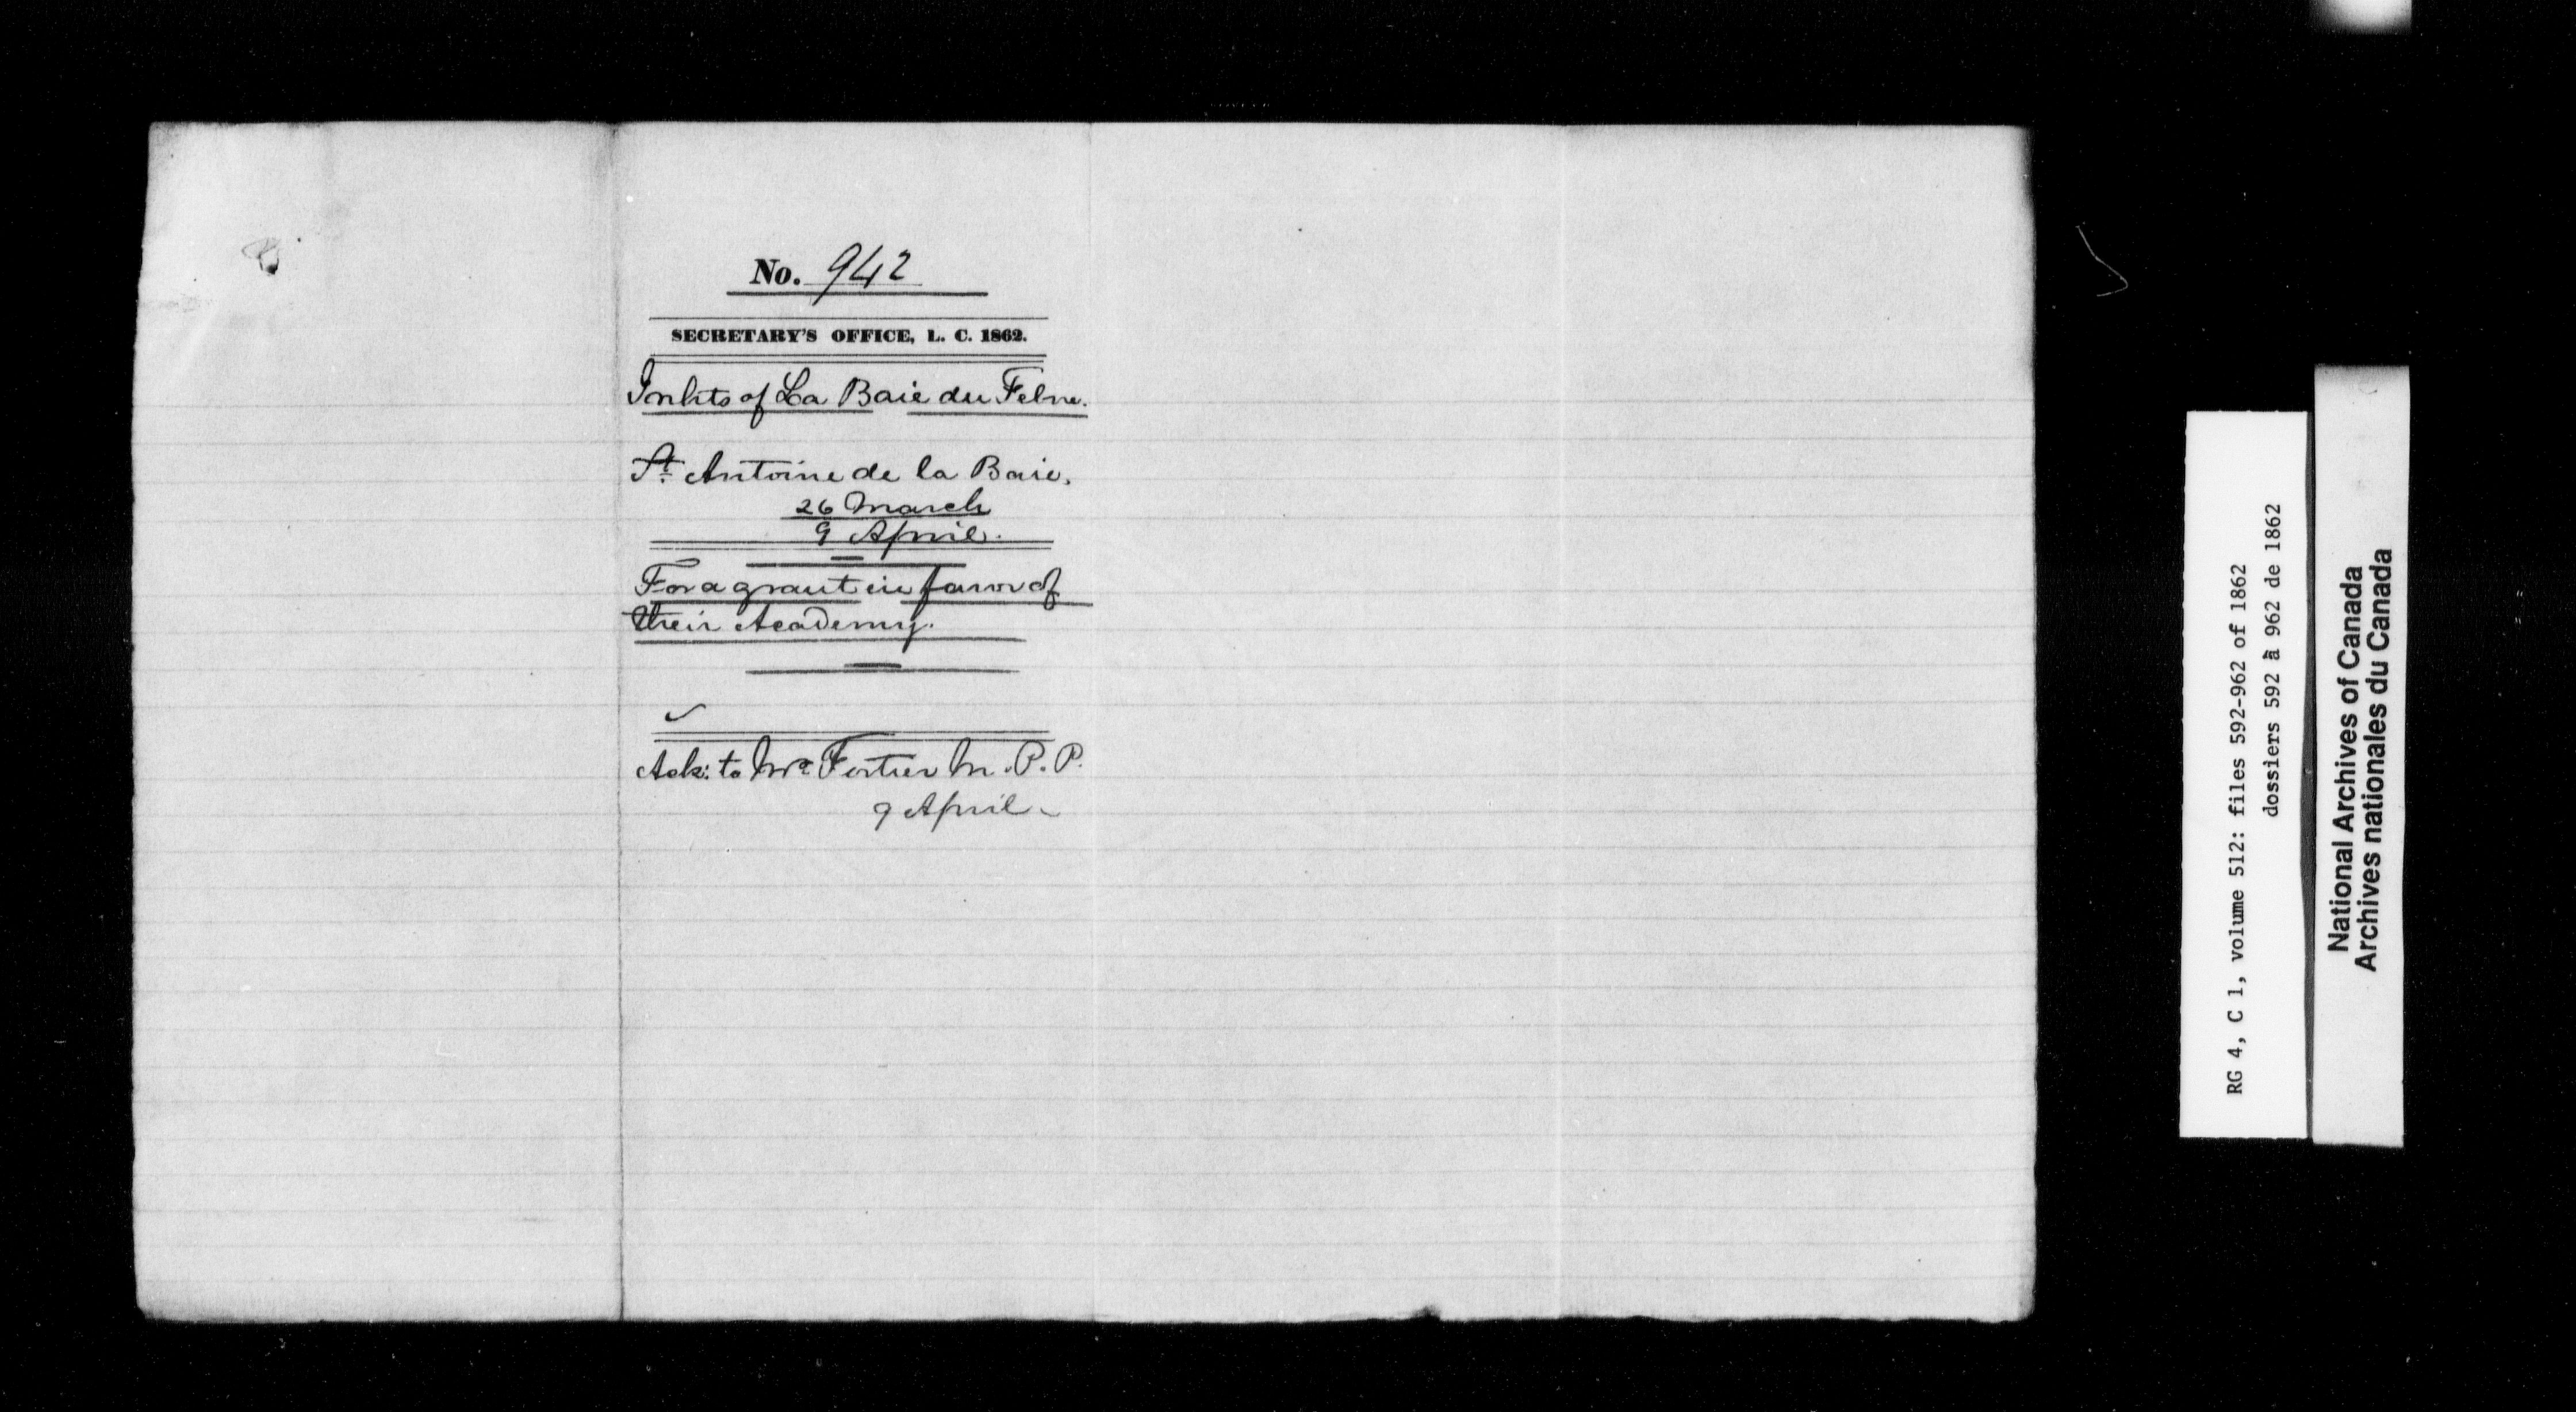 No. 942
SECRETARY'S OFFICE, L. C. 1862.
Inhts of La Baie du Febve.
St. Antoine de la Baie,
26 March
9 April.
For a grant in favor of
their Academy.
Ack: to Mr. Fortier M.P.P.
9 April
RG 4, C 1, volume 512: files 592-962 of 1862
dossiers 592 à 962 de 1862
National Archives of Canada
Archives nationales du Canada